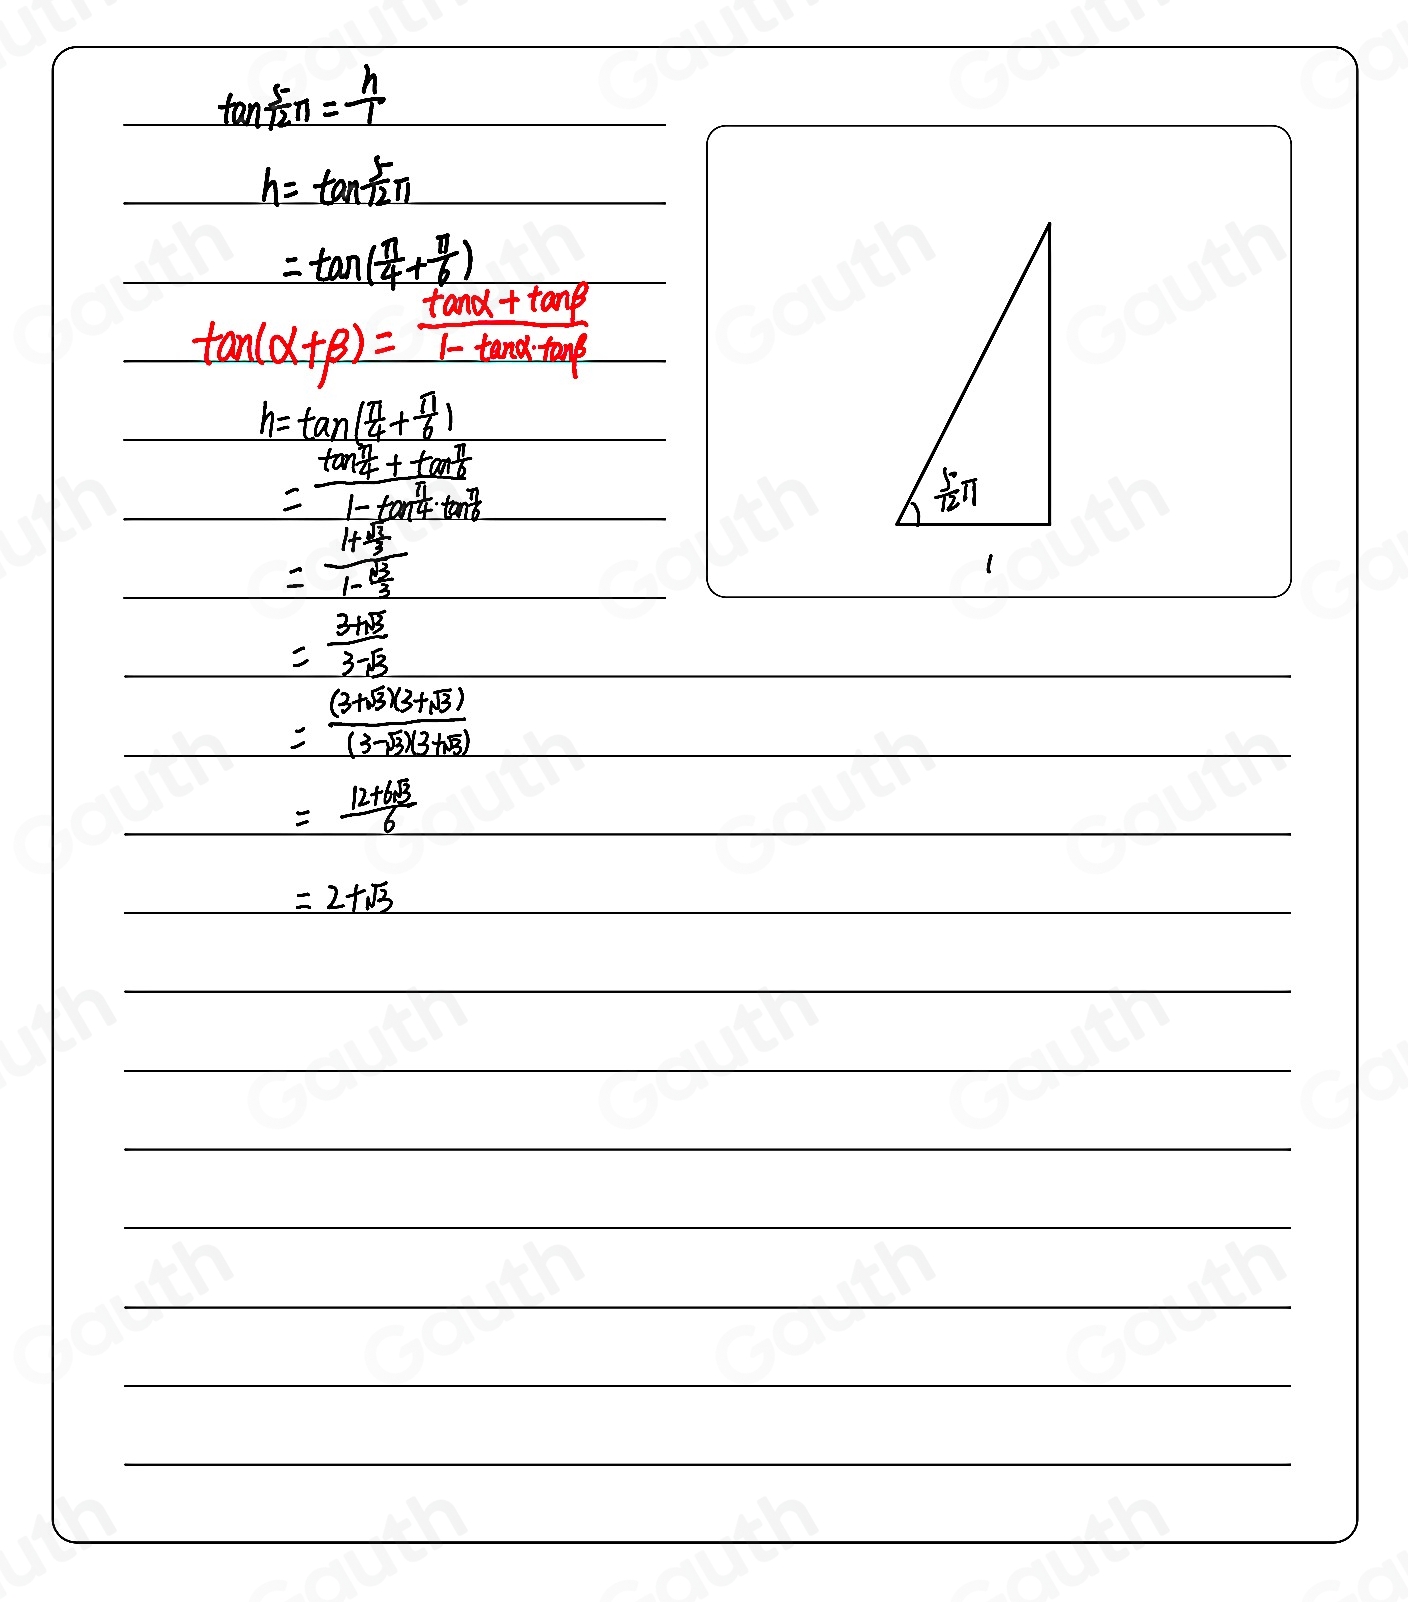 tan 5/12 π = h/1
h = tan 5/12 π
= tan(π/4 + π/6)
tan(α+β) = (tanα + tanβ)/(1 - tanα·tanβ)
h = tan(π/4 + π/6)
= (tan π/4 + tan π/6)/(1 - tan π/4 · tan π/6)
= (1 + √3/3)/(1 - √3/3)
= (3+√3)/(3-√3)
= (3+√3)(3+√3)/(3-√3)(3+√3)
= (12+6√3)/6
= 2+√3
5/12 π
1
Gauth